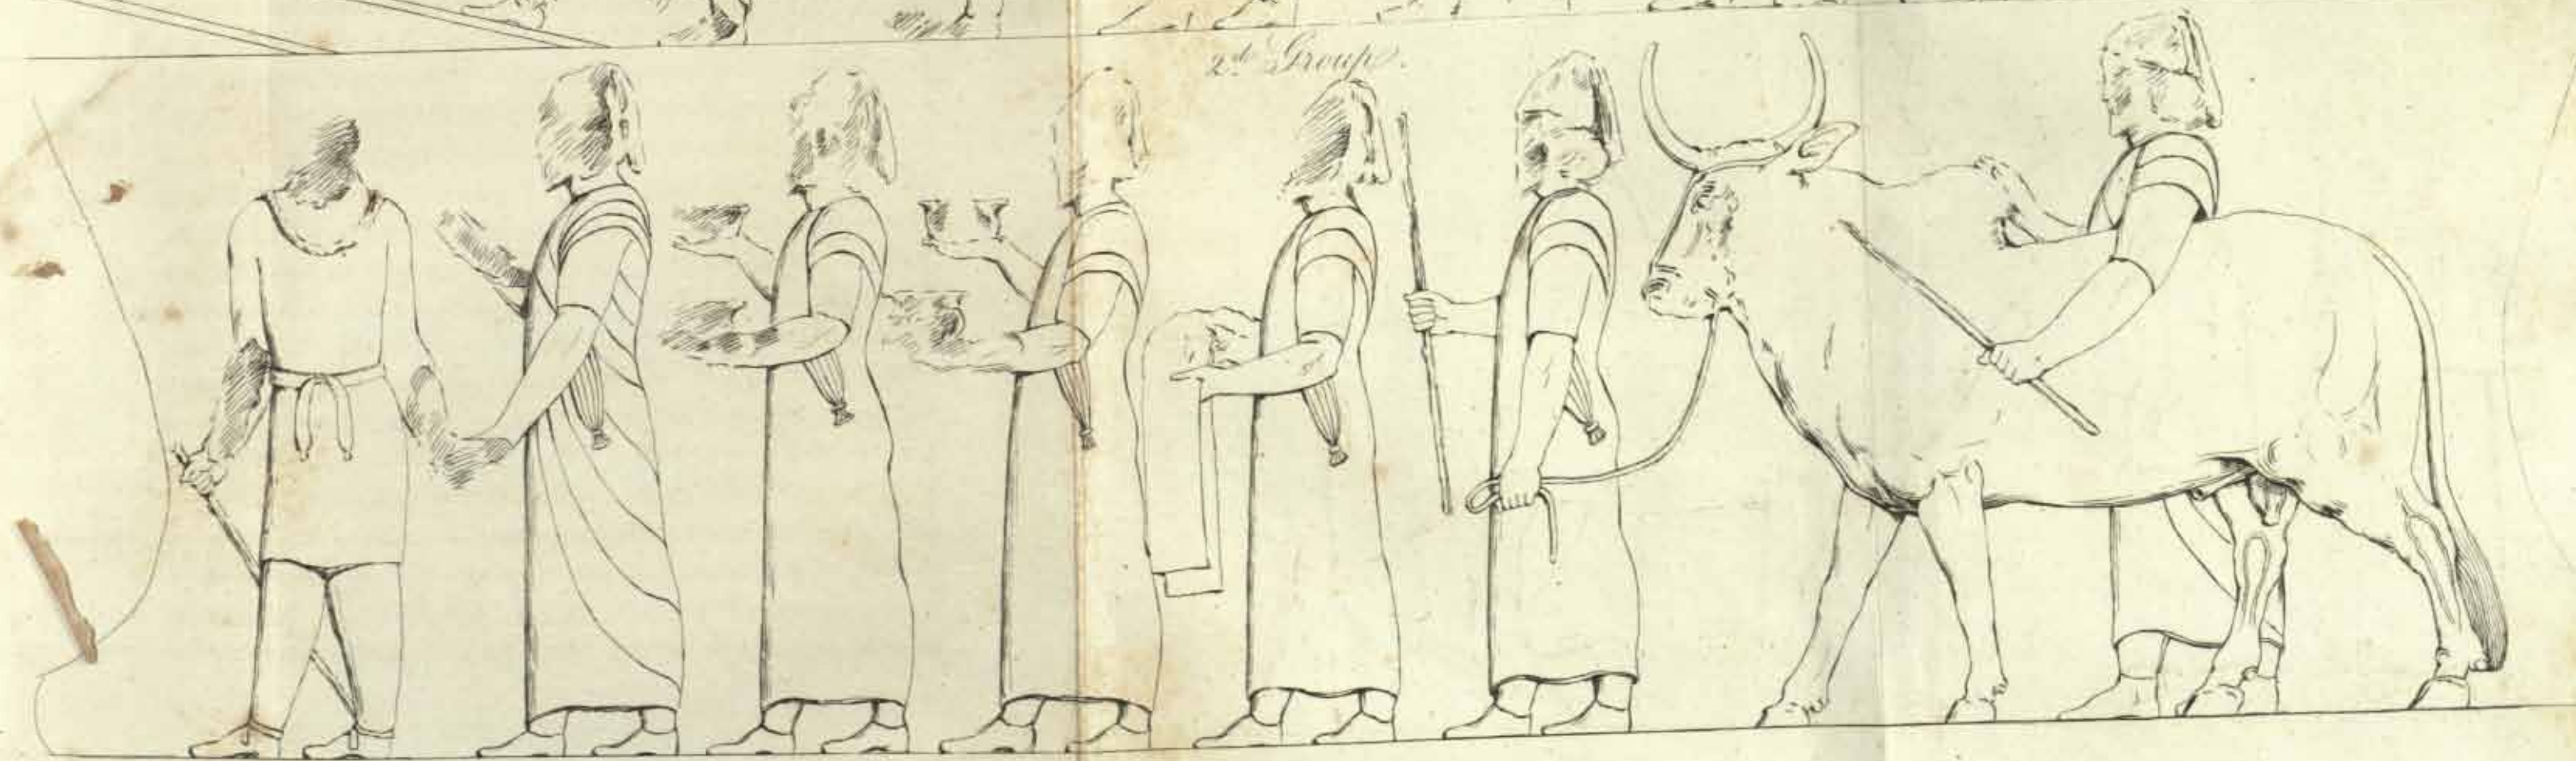 2.de Group.